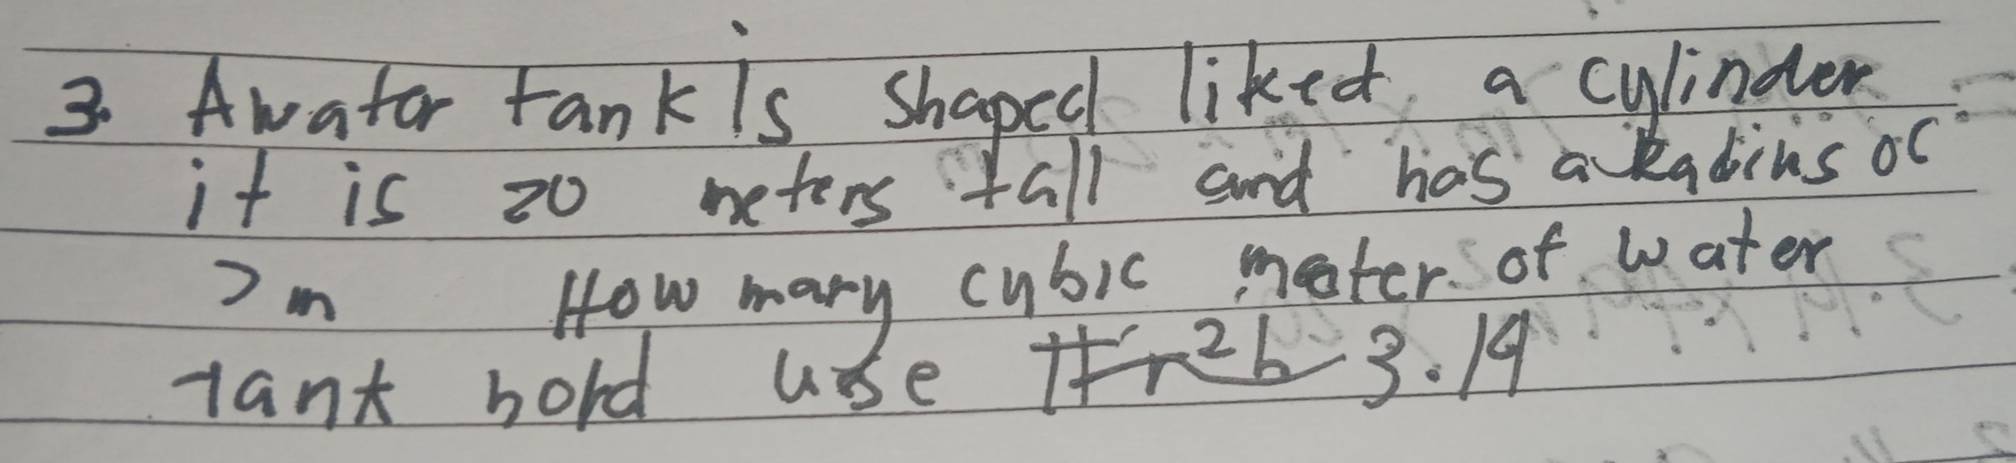 3. A water tank is shaped liked a cylinder
it is 20 meters tall and has a Radius of
7m How many cubic meter of water
tank hold use πr²h 3.14